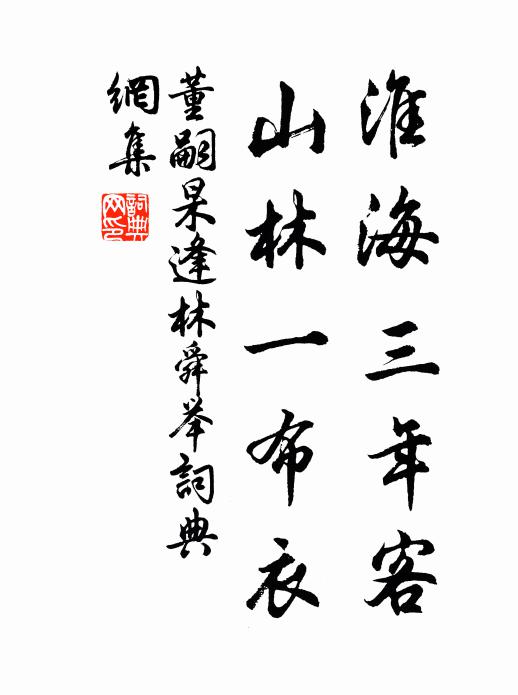 淮海三年客
山林一布衣
董嗣杲逢林舜举詞典
網集
詞典
网印